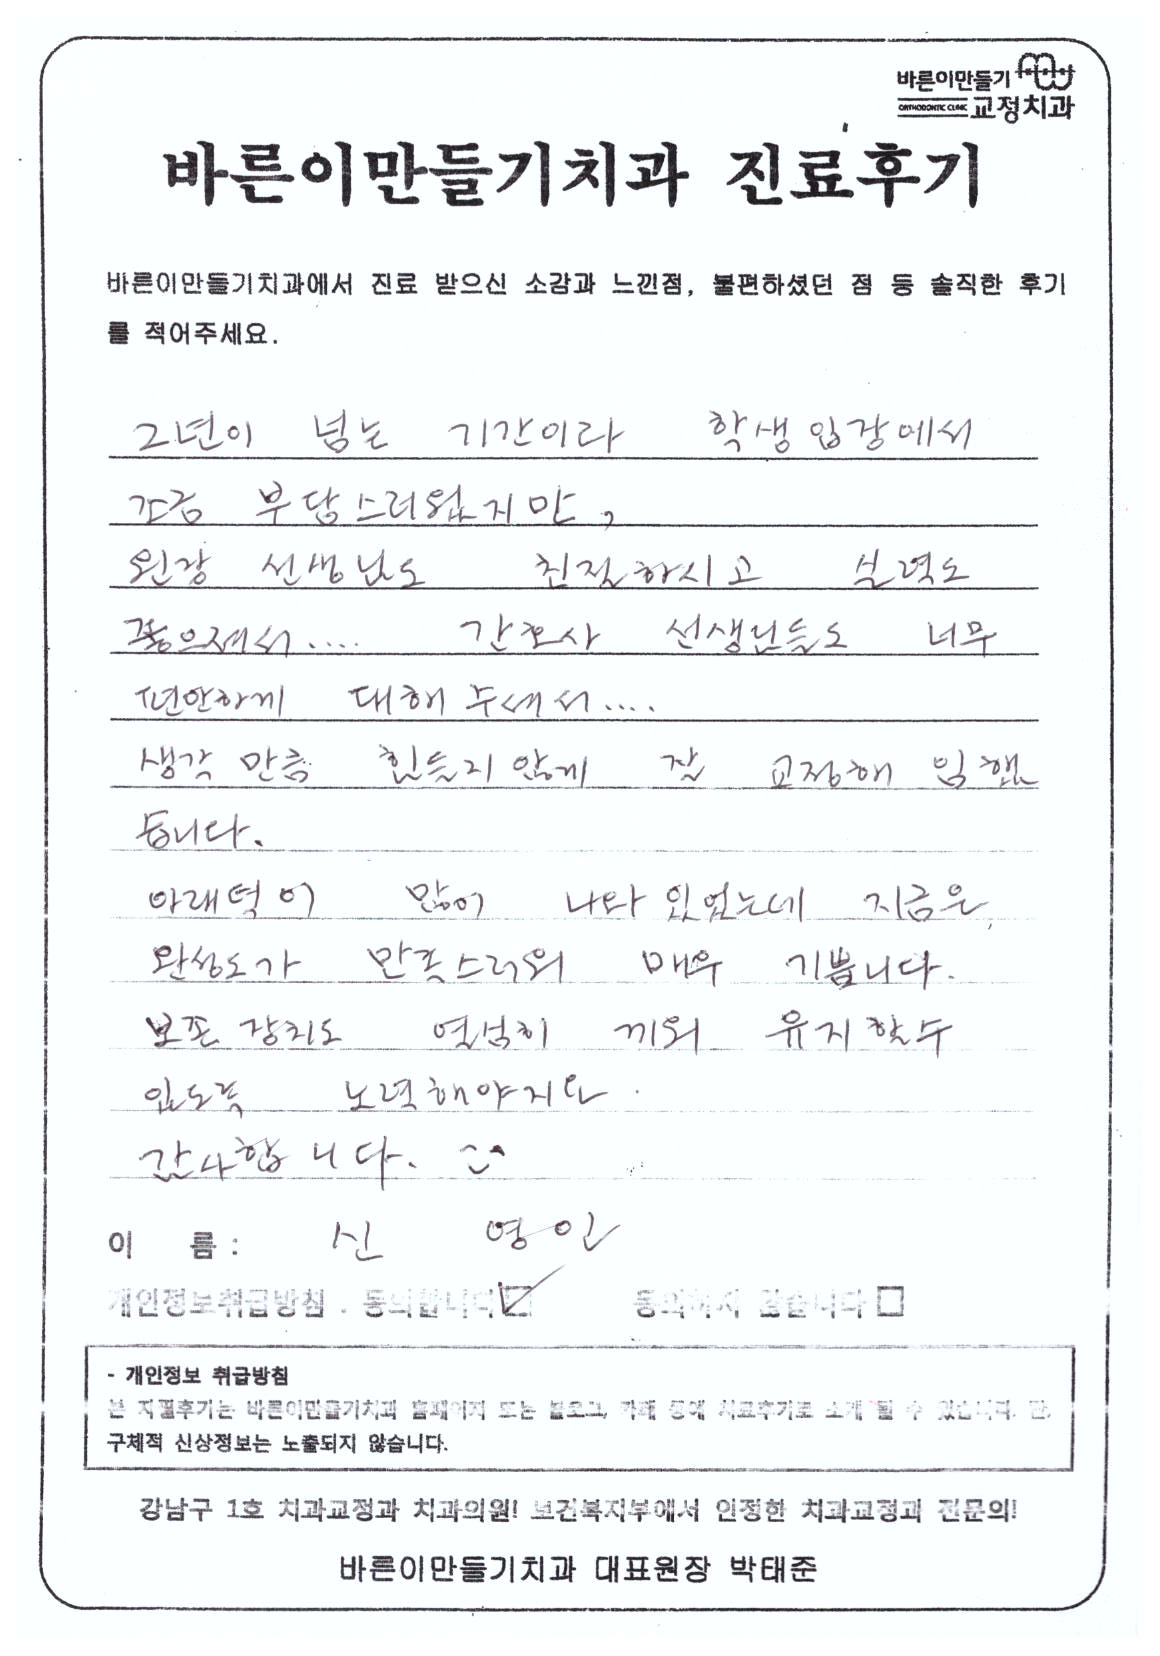 바른이만들기
ORTHODONTIC CLINIC 교정치과
바른이만들기치과 진료후기
바른이만들기치과에서 진료 받으신 소감과 느낀점, 불편하셨던 점 등 솔직한 후기
를 적어주세요.
2년이 넘는 기간이라 학생입장에서
조금 부담스러웠지만,
원장 선생님도 친절하시고 실력도
좋으셔서.... 간호사 선생님들도 너무
편안하게 대해주셔서....
생각 만큼 힘들지 않게 잘 교정해 임했
습니다.
아래턱이 많이 나와 있었는데 지금은
완성도가 만족스러워 매우 기쁩니다.
보존장치도 열심히 끼워 유지할수
있도록 노력해야지요.
감사합니다.
이 름 : 신 영인
개인정보취급방침 : 동의합니다 동의하지 않습니다
- 개인정보 취급방침
본 치료후기는 바른이만들기치과 홈페이지 또는 블로그, 카페 등에 치료후기로 소개 될 수 있습니다. 단,
구체적 신상정보는 노출되지 않습니다.
강남구 1호 치과교정과 치과의원! 보건복지부에서 인정한 치과교정과 전문의!
바른이만들기치과 대표원장 박태준